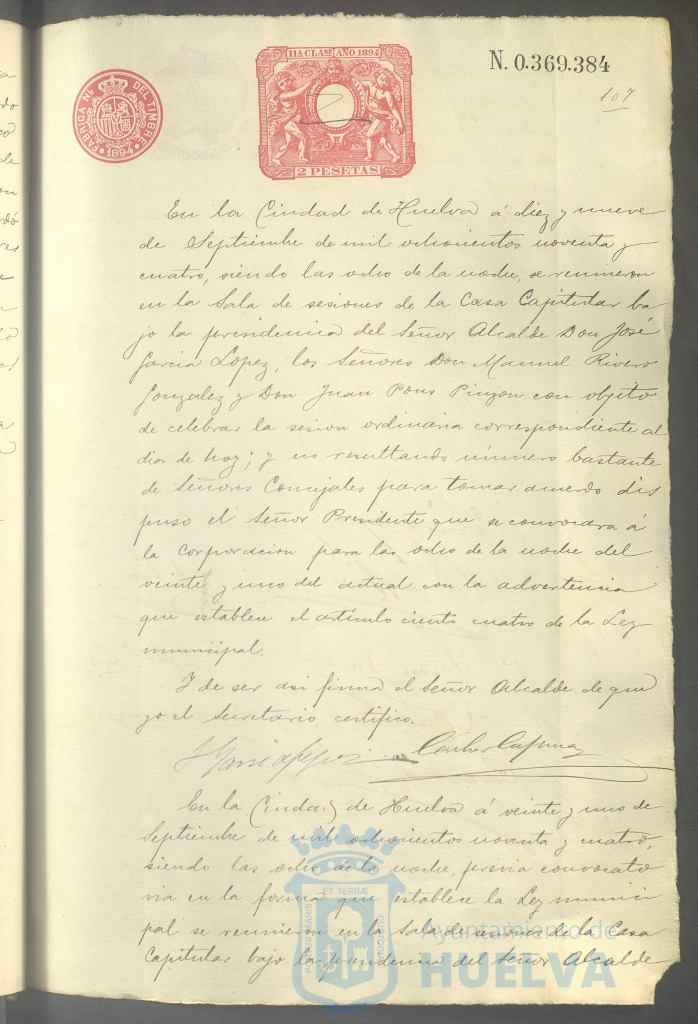 FABRICA NL. DEL TIMBRE
1894
11A CLASE AÑO 1894
2 PESETAS
N. 0.369.384
107
En la Ciudad de Huelva á diez y nueve
de Septiembre de mil ochocientos noventa y
cuatro, siendo las ocho de la noche, se reunieron
en la Sala de sesiones de la Casa Capitular ba
jo la presidencia del Señor Alcalde Don José
Garcia Lopez, los Señores Don Manuel Rivero
Gonzalez y Don Juan Pons Pinzon con objeto
de celebrar la sesion ordinaria correspondiente al
dia de hoy; y no resultando número bastante
de Señores Concejales para tomar acuerdo dis
puso el Señor Presidente que se convocára á
la Corporacion para las ocho de la noche del
veinte y uno del actual con la advertencia
que establece el artículo ciento cuatro de la Ley
municipal.
Y de ser asi firma el Señor Alcalde de que
yo el Secretario certifico.
J Garcia Lopez
En la Ciudad de Huelva á veinte y uno de
Septiembre de mil ochocientos noventa y cuatro,
siendo las ocho de la noche, prévia convocato
ria en la forma que establece la Ley munici
pal se reunieron en la Sala de sesiones de la Casa
Capitular bajo la presidencia del Señor Alcalde
ET TERRÆ
PORTUS MARIS
CUSTODIA
Ayuntamiento de
HUELVA